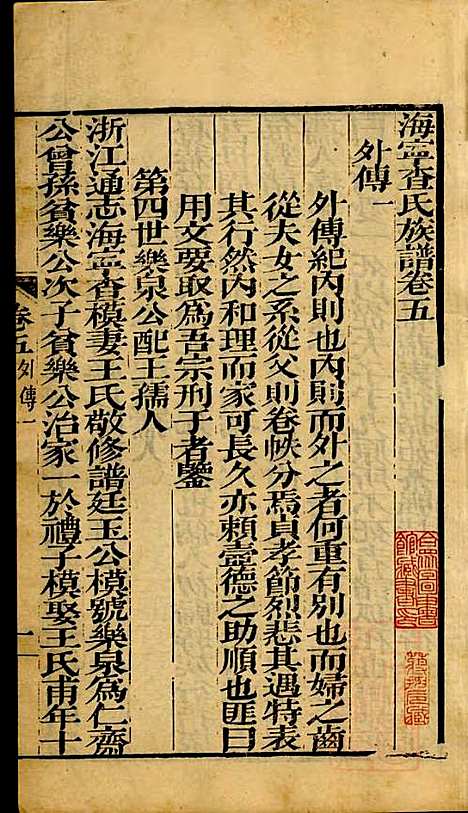 海寧查氏族譜卷五
外傳一
外傳紀內則也內則而外之者何重有別也而婦之齒
從夫女之系從父則卷帙分焉貞孝節烈悲其遇特表
其行然內和理而家可長久亦賴壼德之助順也匪曰
用文要取為吾宗刑于者鑒
第四世樂泉公配王孺人
浙江通志海寧查模妻王氏敬修譜廷玉公模號樂泉為仁齋
公曾孫貧樂公次子貧樂公治家一於禮子模娶王氏甫年十
卷五外傳一
一